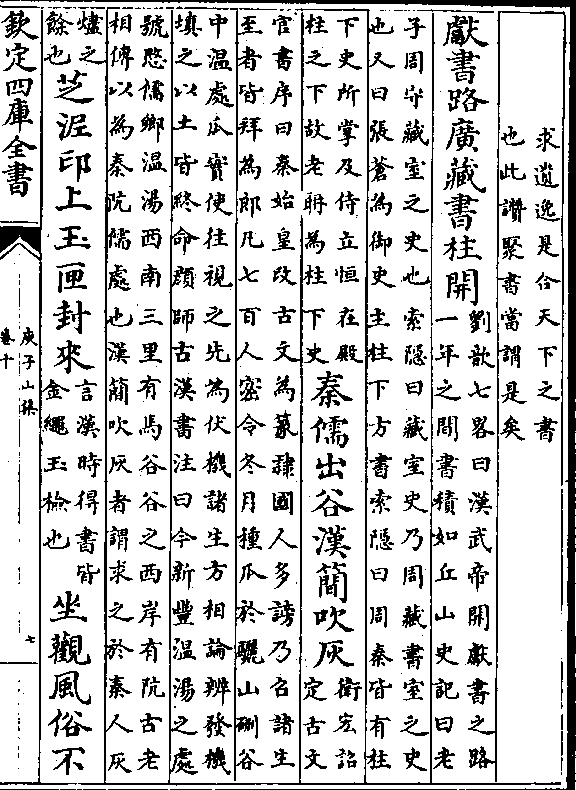 求遺逸是合天下之書
也此讚聚書當謂是矣
獻書路廣藏書柱開
劉歆七畧曰漢武帝開獻書之路
一年之間書積如丘山史記曰老
子周守藏室之史也索隱曰藏室史乃周藏書室之史
也又曰張蒼為御史主柱下方書索隱曰周秦皆有柱
下史所掌及侍立恒在殿
柱之下故老聃為柱下史
秦儒出谷漢簡吹灰
衛宏詔
定古文
官書序曰秦始皇改古文為篆隷國人多謗乃召諸生
至者皆拜為郎凡七百人密令冬月種瓜於驪山硎谷
中温處瓜實使往視之先為伏機諸生方相論辨發機
填之以土皆終命顔師古漢書注曰今新豐温湯之處
號愍儒鄉温湯西南三里有馬谷谷之西岸有阬古老
相傳以為秦阬儒處也漢簡吹灰者謂求之於秦人灰
燼之
餘也
芝泥印上玉匣封來
言漢時得書皆
金繩玉檢也
坐觀風俗不
欽定四庫全書
庾子山集
卷十
七